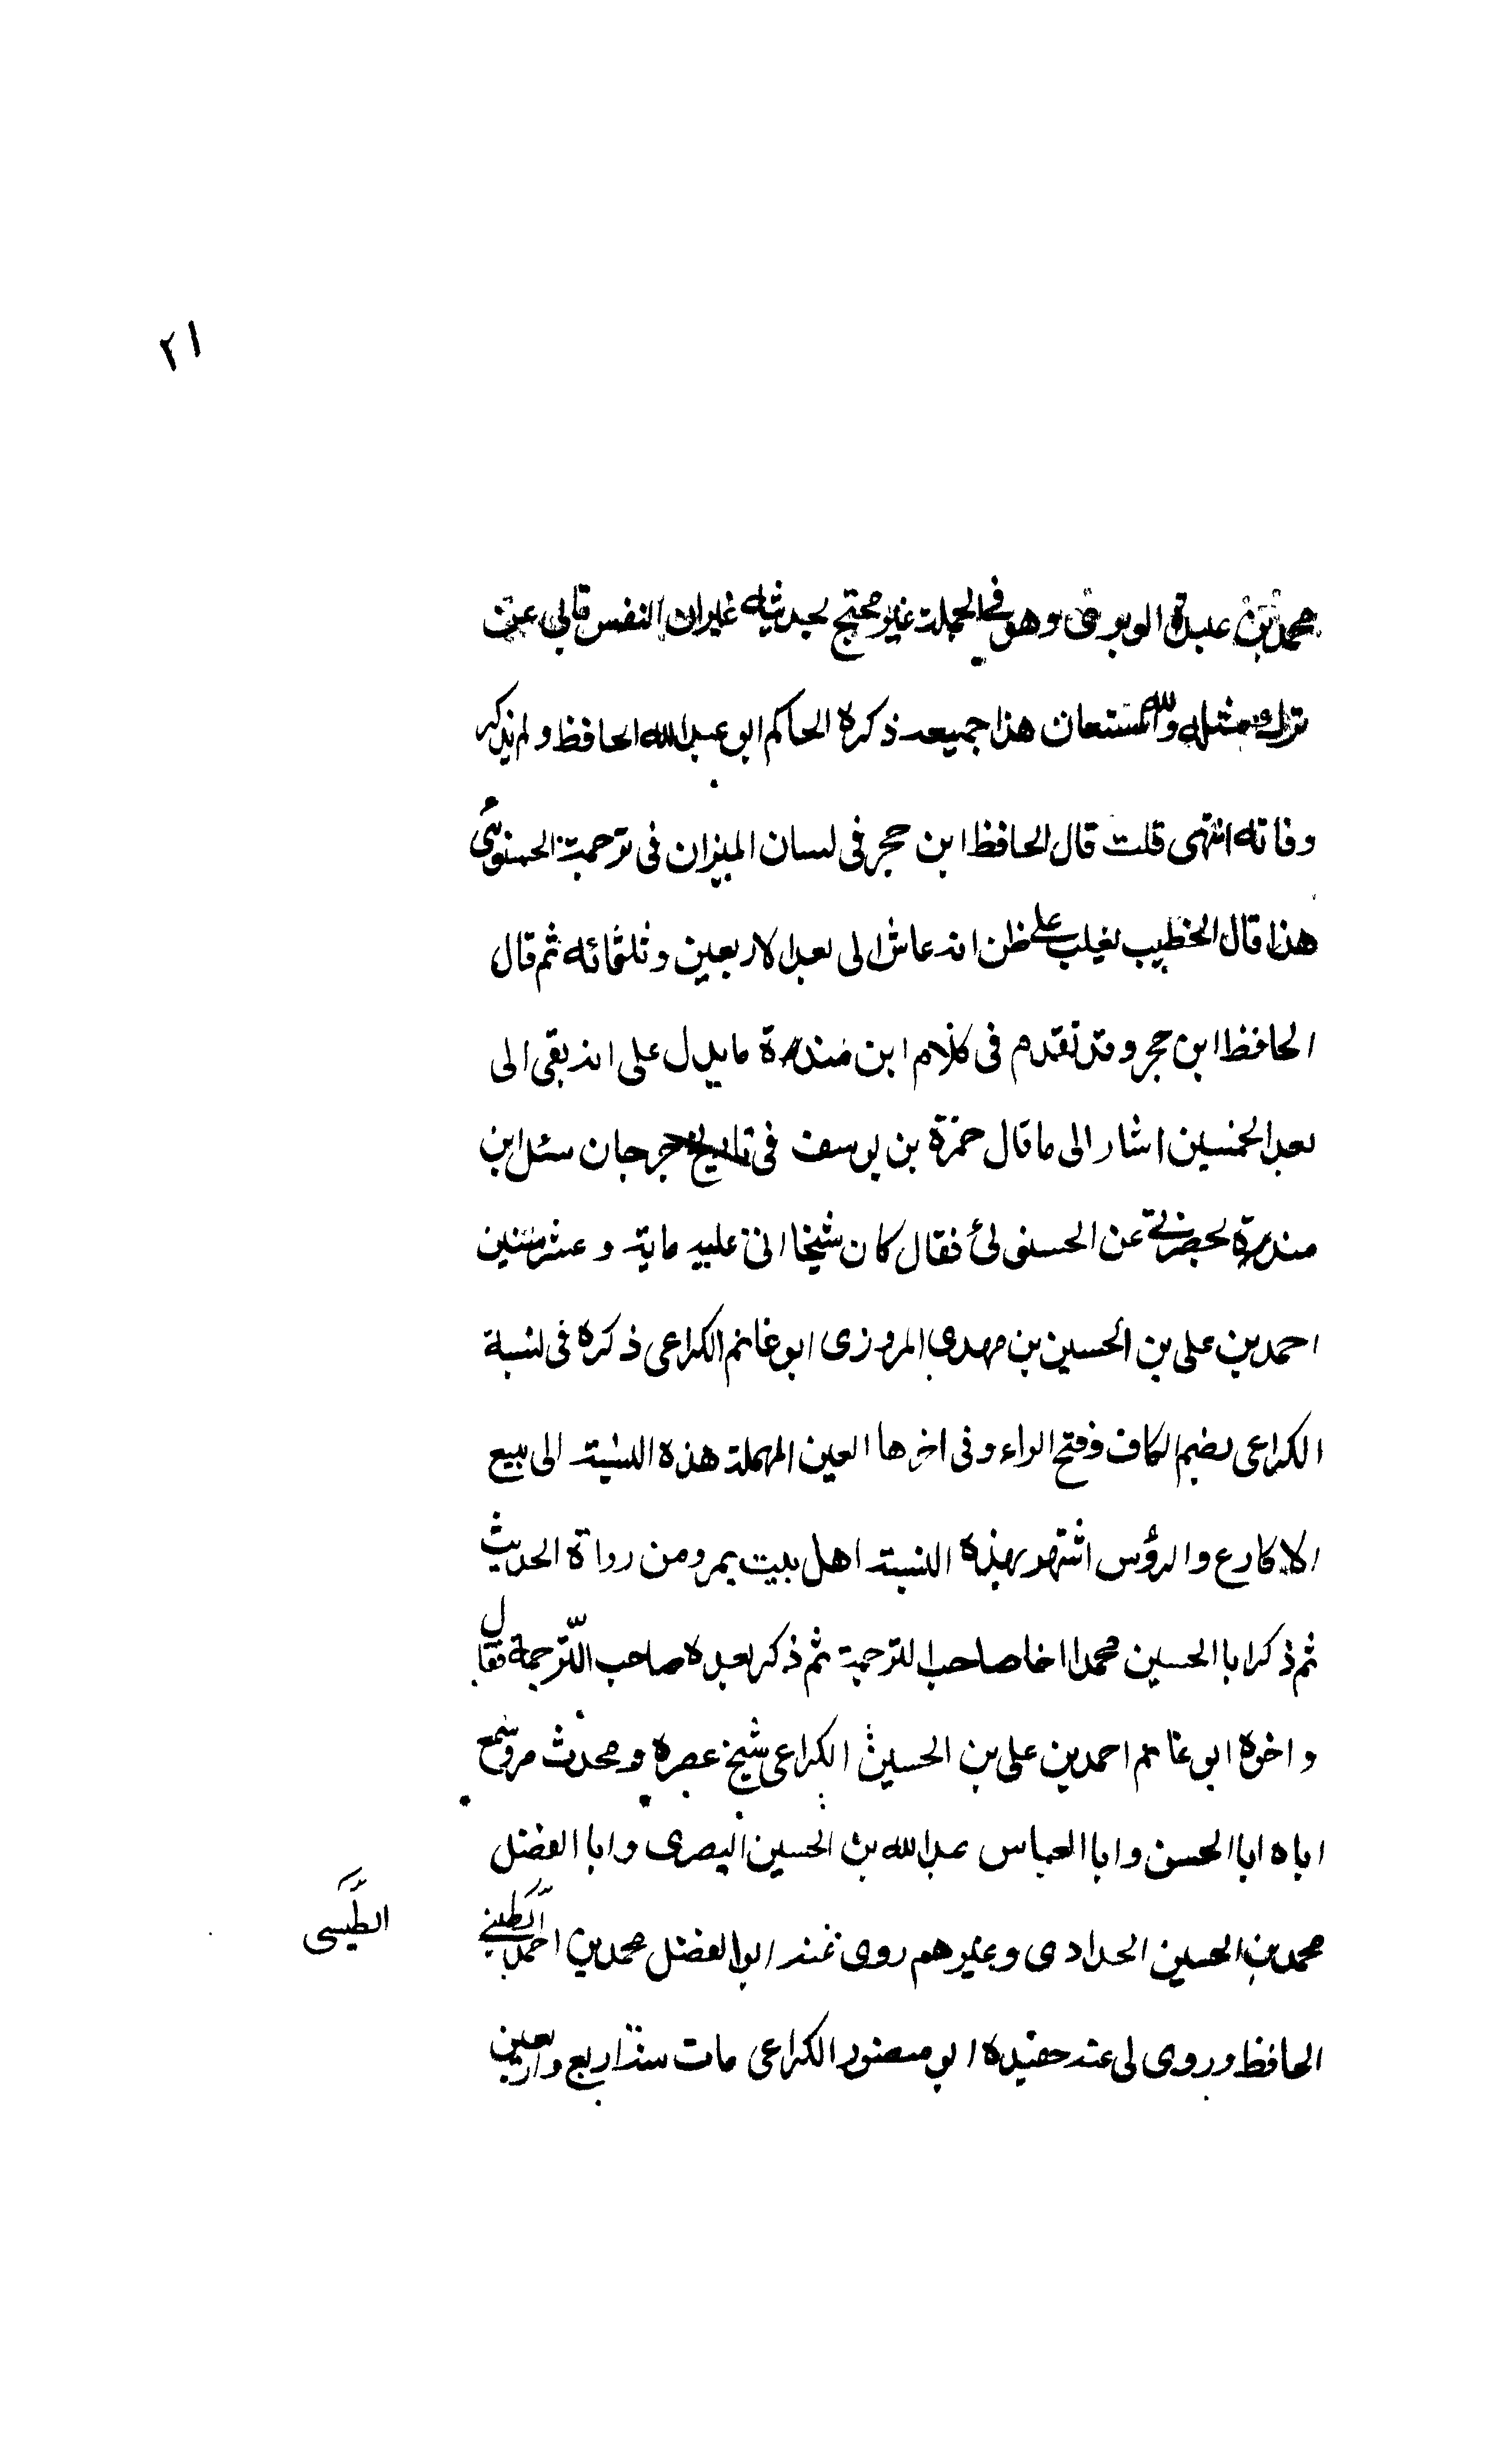 ٢١
محمد بن عبدة الوبوضى وهو في الجملة غير محتج بحديثه غيران النفس تابى عن
ترك مثله والله المستعان هذا جميعه ذكره الحاكم ابو عبد الله الحافظ ولم يذكر
وفاته انتهى قلت قال الحافظ ابن حجر فى لسان الميزان فى ترجمة الحسنوئى
هذا قال الخطيب يغلب على ظن انه عاش الى بعد الاربعين وثلثمائه ثم قال
الحافظ ابن حجر وقد تقدم فى كلام ابن مندة ما يدل على انه بقى الى
بعد الخمسين اشار الى ما قال حمزة بن يوسف فى تاريخ جرجان سئل ابن
مندة بحضرتى عن الحسنوئى فقال كان شيخا اتى عليه ماية وعشر سنين
احمد بن على بن الحسين بن مهدى المروزى ابو غانم الكراعى ذكره فى نسبة
الكراعى بضم الكاف وفتح الراء وفى اخرها العين المهملة هذه النسبة الى بيع
الاكارع والرؤس اشتهر بهذه النسبة اهل بيت بمرو من رواة الحديث
ثم ذكر ابا الحسين محمدا اخا صاحب الترجمة ثم ذكر بعده صاحب الترجمة فقال
واخوه ابو غانم احمد بن على بن الحسين الكراعى شيخ عصره ومحدث مرو سمع
اباه ابا الحسن وابا العباس عبد الله بن الحسين البصرى وابا الفضل
محمد بن الحسين الحدادى وغيرهم روى عنه ابو الفضل محمد بن احمد الطبسي
الطَّبسى
الحافظ وروى لى عنه حفيده ابو منصور الكراعى مات سنة اربع واربعين